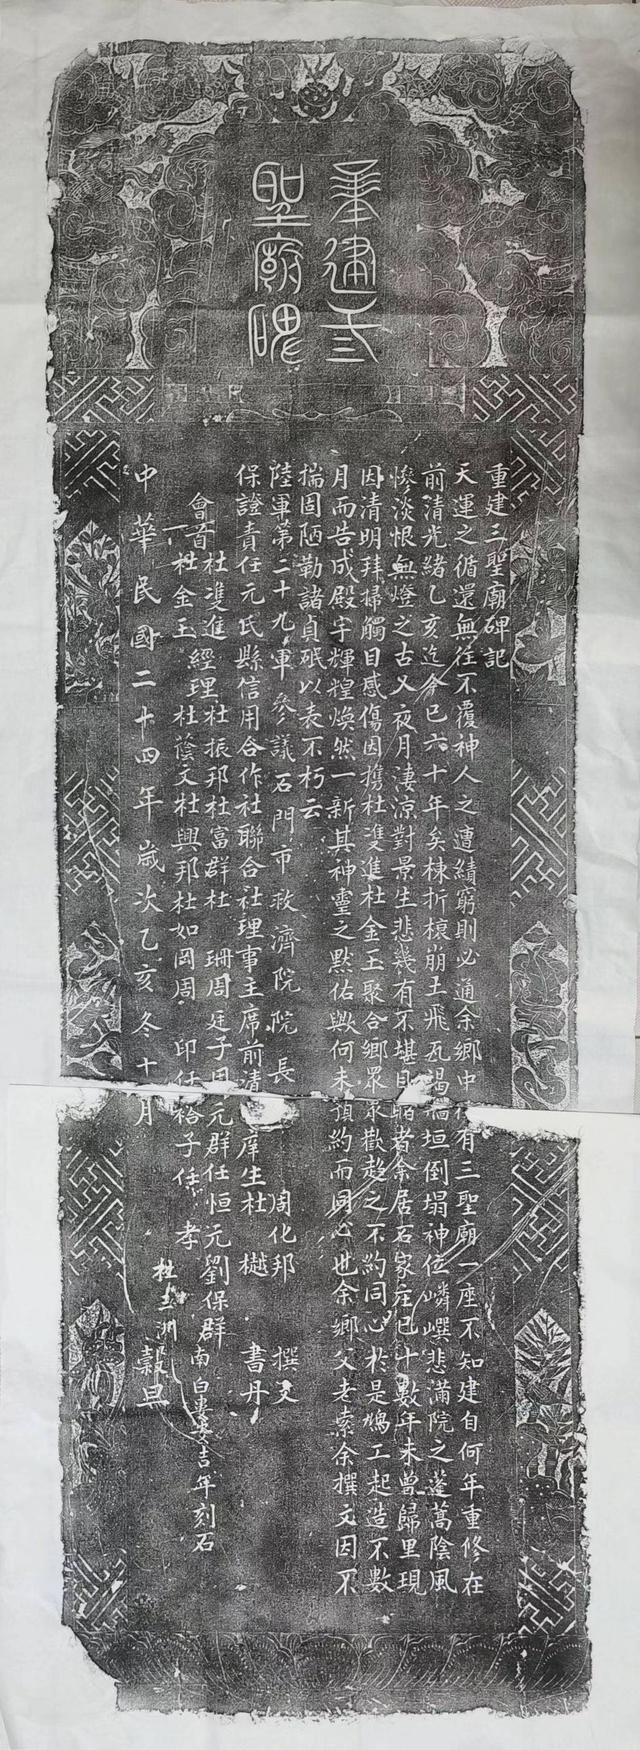 重建三
聖廟碑
重建三聖廟碑記
天運之循還無往不覆神人之遭績窮則必通余鄉中有三聖廟一座不知建自何年重修在
前清光緒乙亥迄今已六十年矣棟折榱崩土飛瓦墻垣倒塌神位嶙峋悲滿院之蓬蒿陰風
慘淡恨無燈之古又夜月淒涼對景生悲幾有不堪目睹者余居石家庄已十數年未曾歸里現
因清明拜掃觸目感傷因携杜雙進杜金玉聚合鄉眾眾歡趋之不約同心於是鳩工起造不數
月而告成殿宇輝煌煥然一新其神靈之默佑歟何未預約而同心也余鄉父老索余撰文因不
揣固陋勒諸貞珉以表不朽云
陸軍第二十九軍參議石門市救濟院院長 周化邦 撰文
保證責任元氏縣信用合作社聯合社理事主席前清庠生杜樾 書丹
會首 杜雙進 經理 杜振邦 杜富群 杜珊 周廷子 周元群 任恒元 劉保群
杜金玉 杜蔭文 杜興邦 杜如岡 周印 任裕子 任孝 南白婁 吉年刻石
中華民國二十四年歲次乙亥冬十月 穀旦
杜 洲